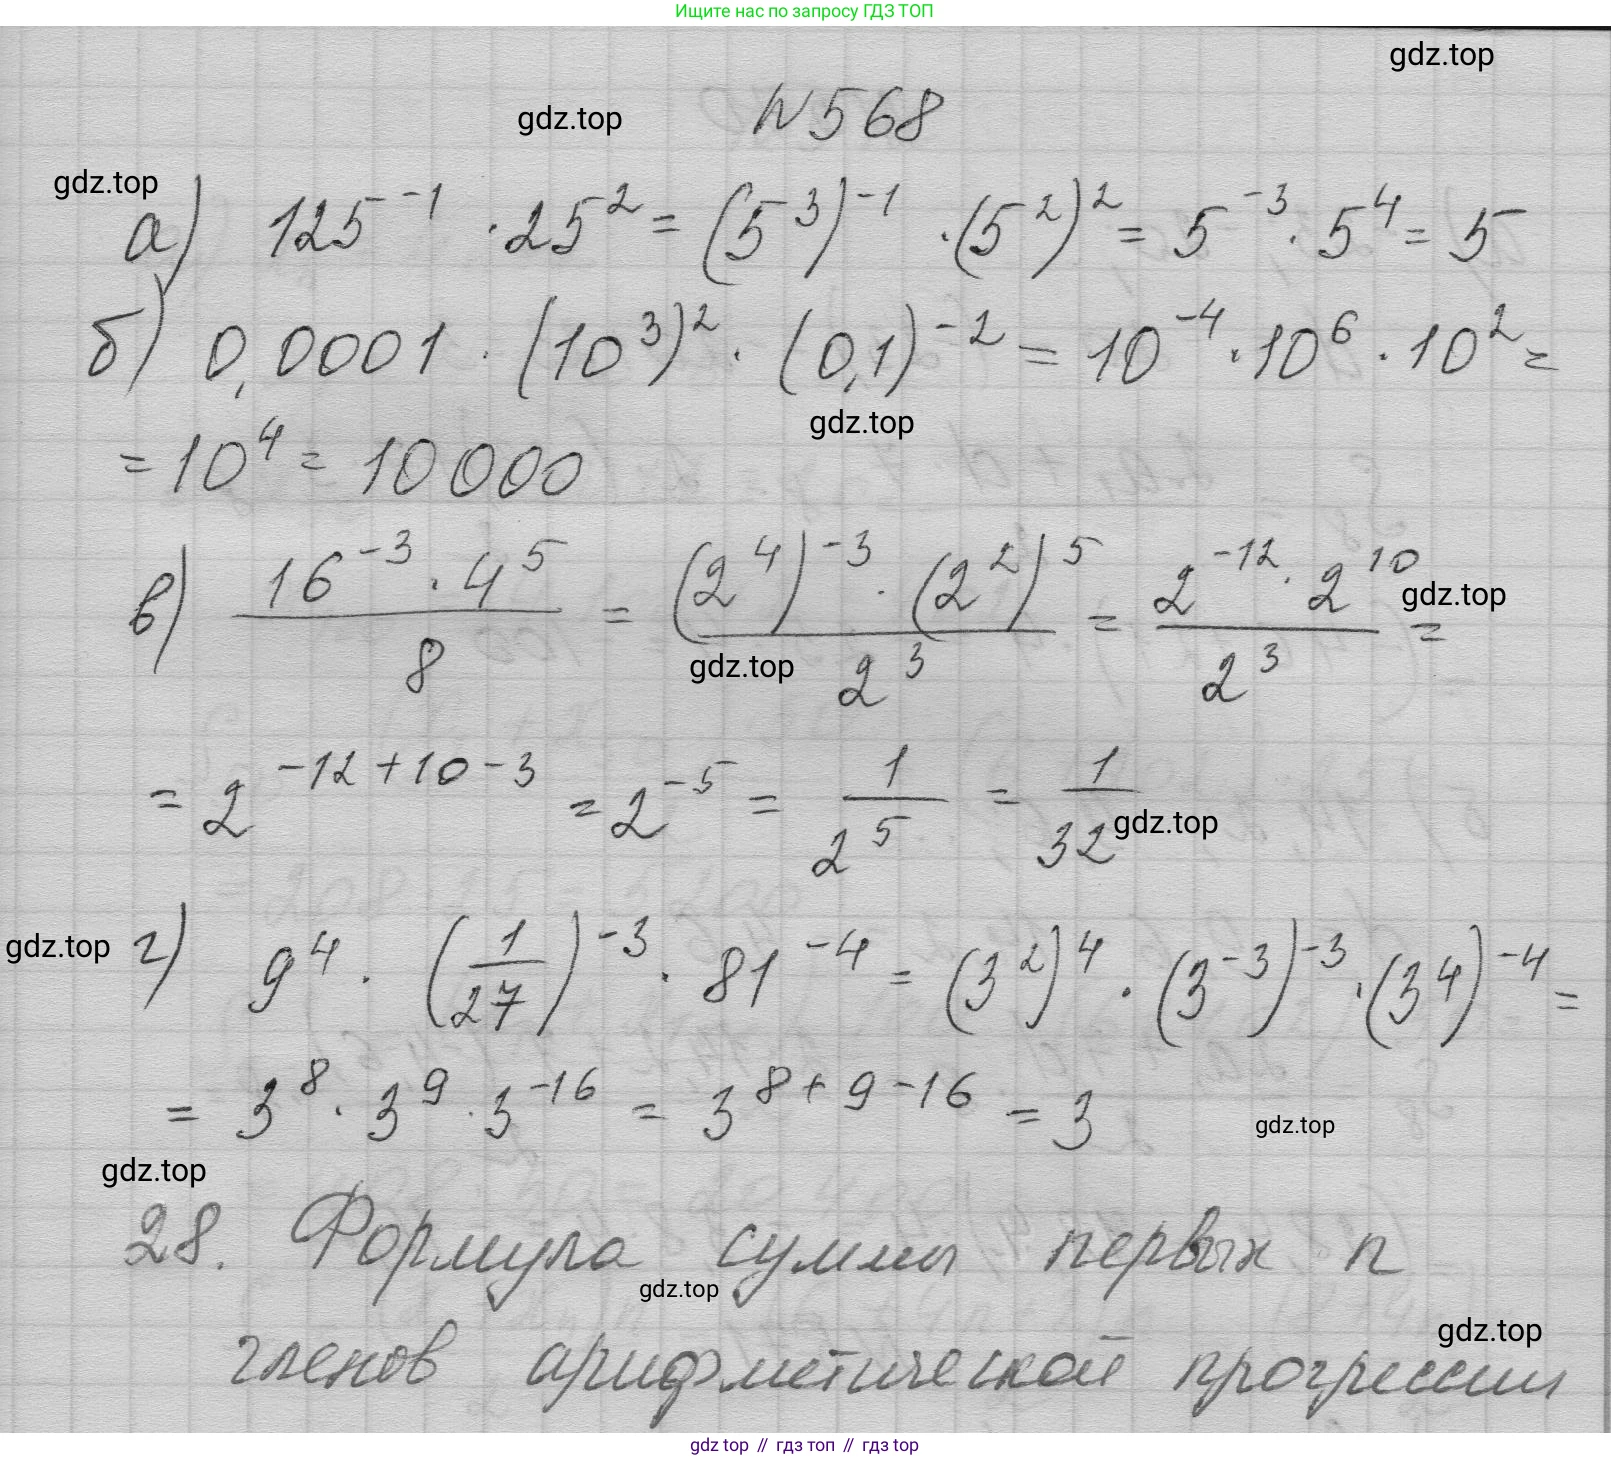 Ищите нас по запросу ГДЗ ТОП
gdz.top
gdz.top
№568
gdz.top
а) 125⁻¹ · 25² = (5³)⁻¹ · (5²)² = 5⁻³ · 5⁴ = 5
б) 0,0001 · (10³)² · (0,1)⁻² = 10⁻⁴ · 10⁶ · 10² =
gdz.top
= 10⁴ = 10000
в) (16⁻³ · 4⁵)/8 = ((2⁴)⁻³ · (2²)⁵)/2³ = (2⁻¹² · 2¹⁰)/2³ =
gdz.top
gdz.top
= 2⁻¹²⁺¹⁰⁻³ = 2⁻⁵ = 1/2⁵ = 1/32
gdz.top
gdz.top
г) 9⁴ · (1/27)⁻³ · 81⁻⁴ = (3²)⁴ · (3⁻³)⁻³ · (3⁴)⁻⁴ =
= 3⁸ · 3⁹ · 3⁻¹⁶ = 3⁸⁺⁹⁻¹⁶ = 3
gdz.top
gdz.top
28. Формула суммы первых n
gdz.top
gdz.top
членов арифметической прогрессии
gdz.top // гдз топ // гдз top